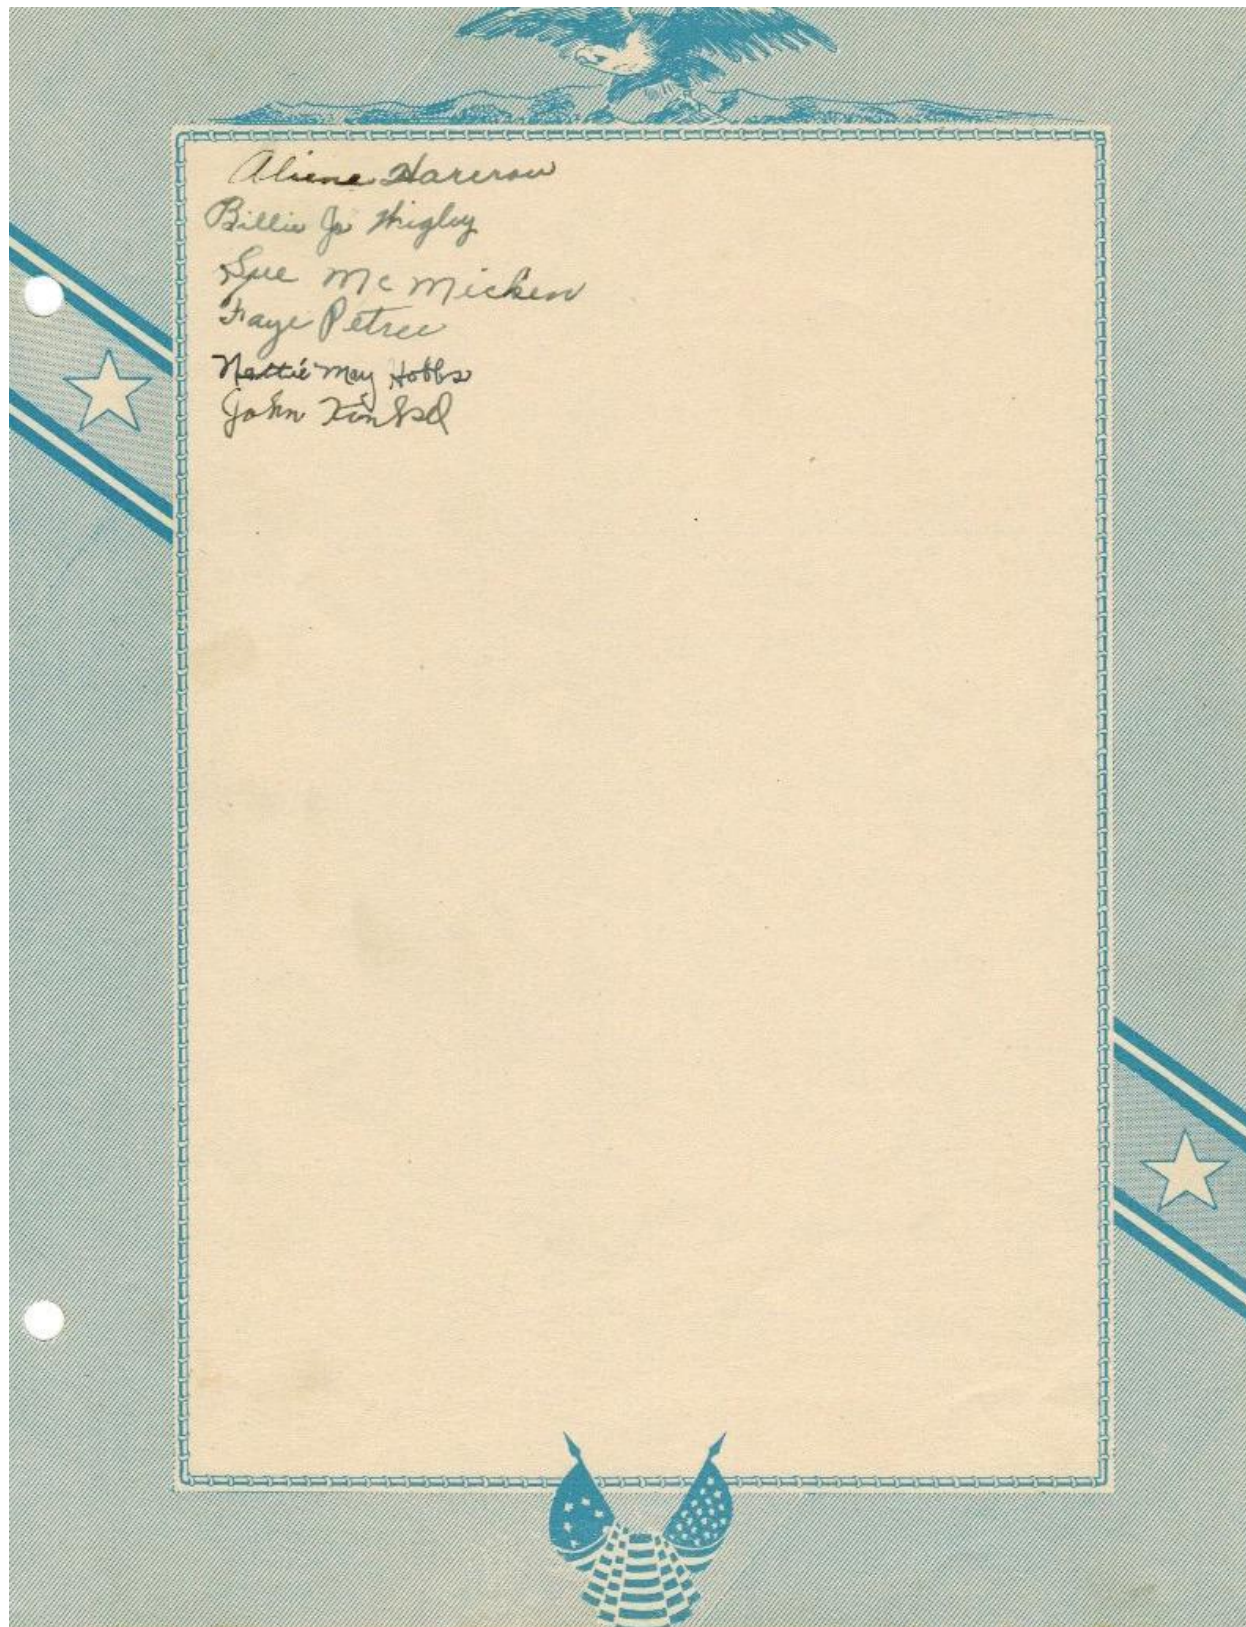 Aliene Harcrow
Billie Jo Higley
Sue McMicken
Faye Petree
Nettie May Hobbs
John